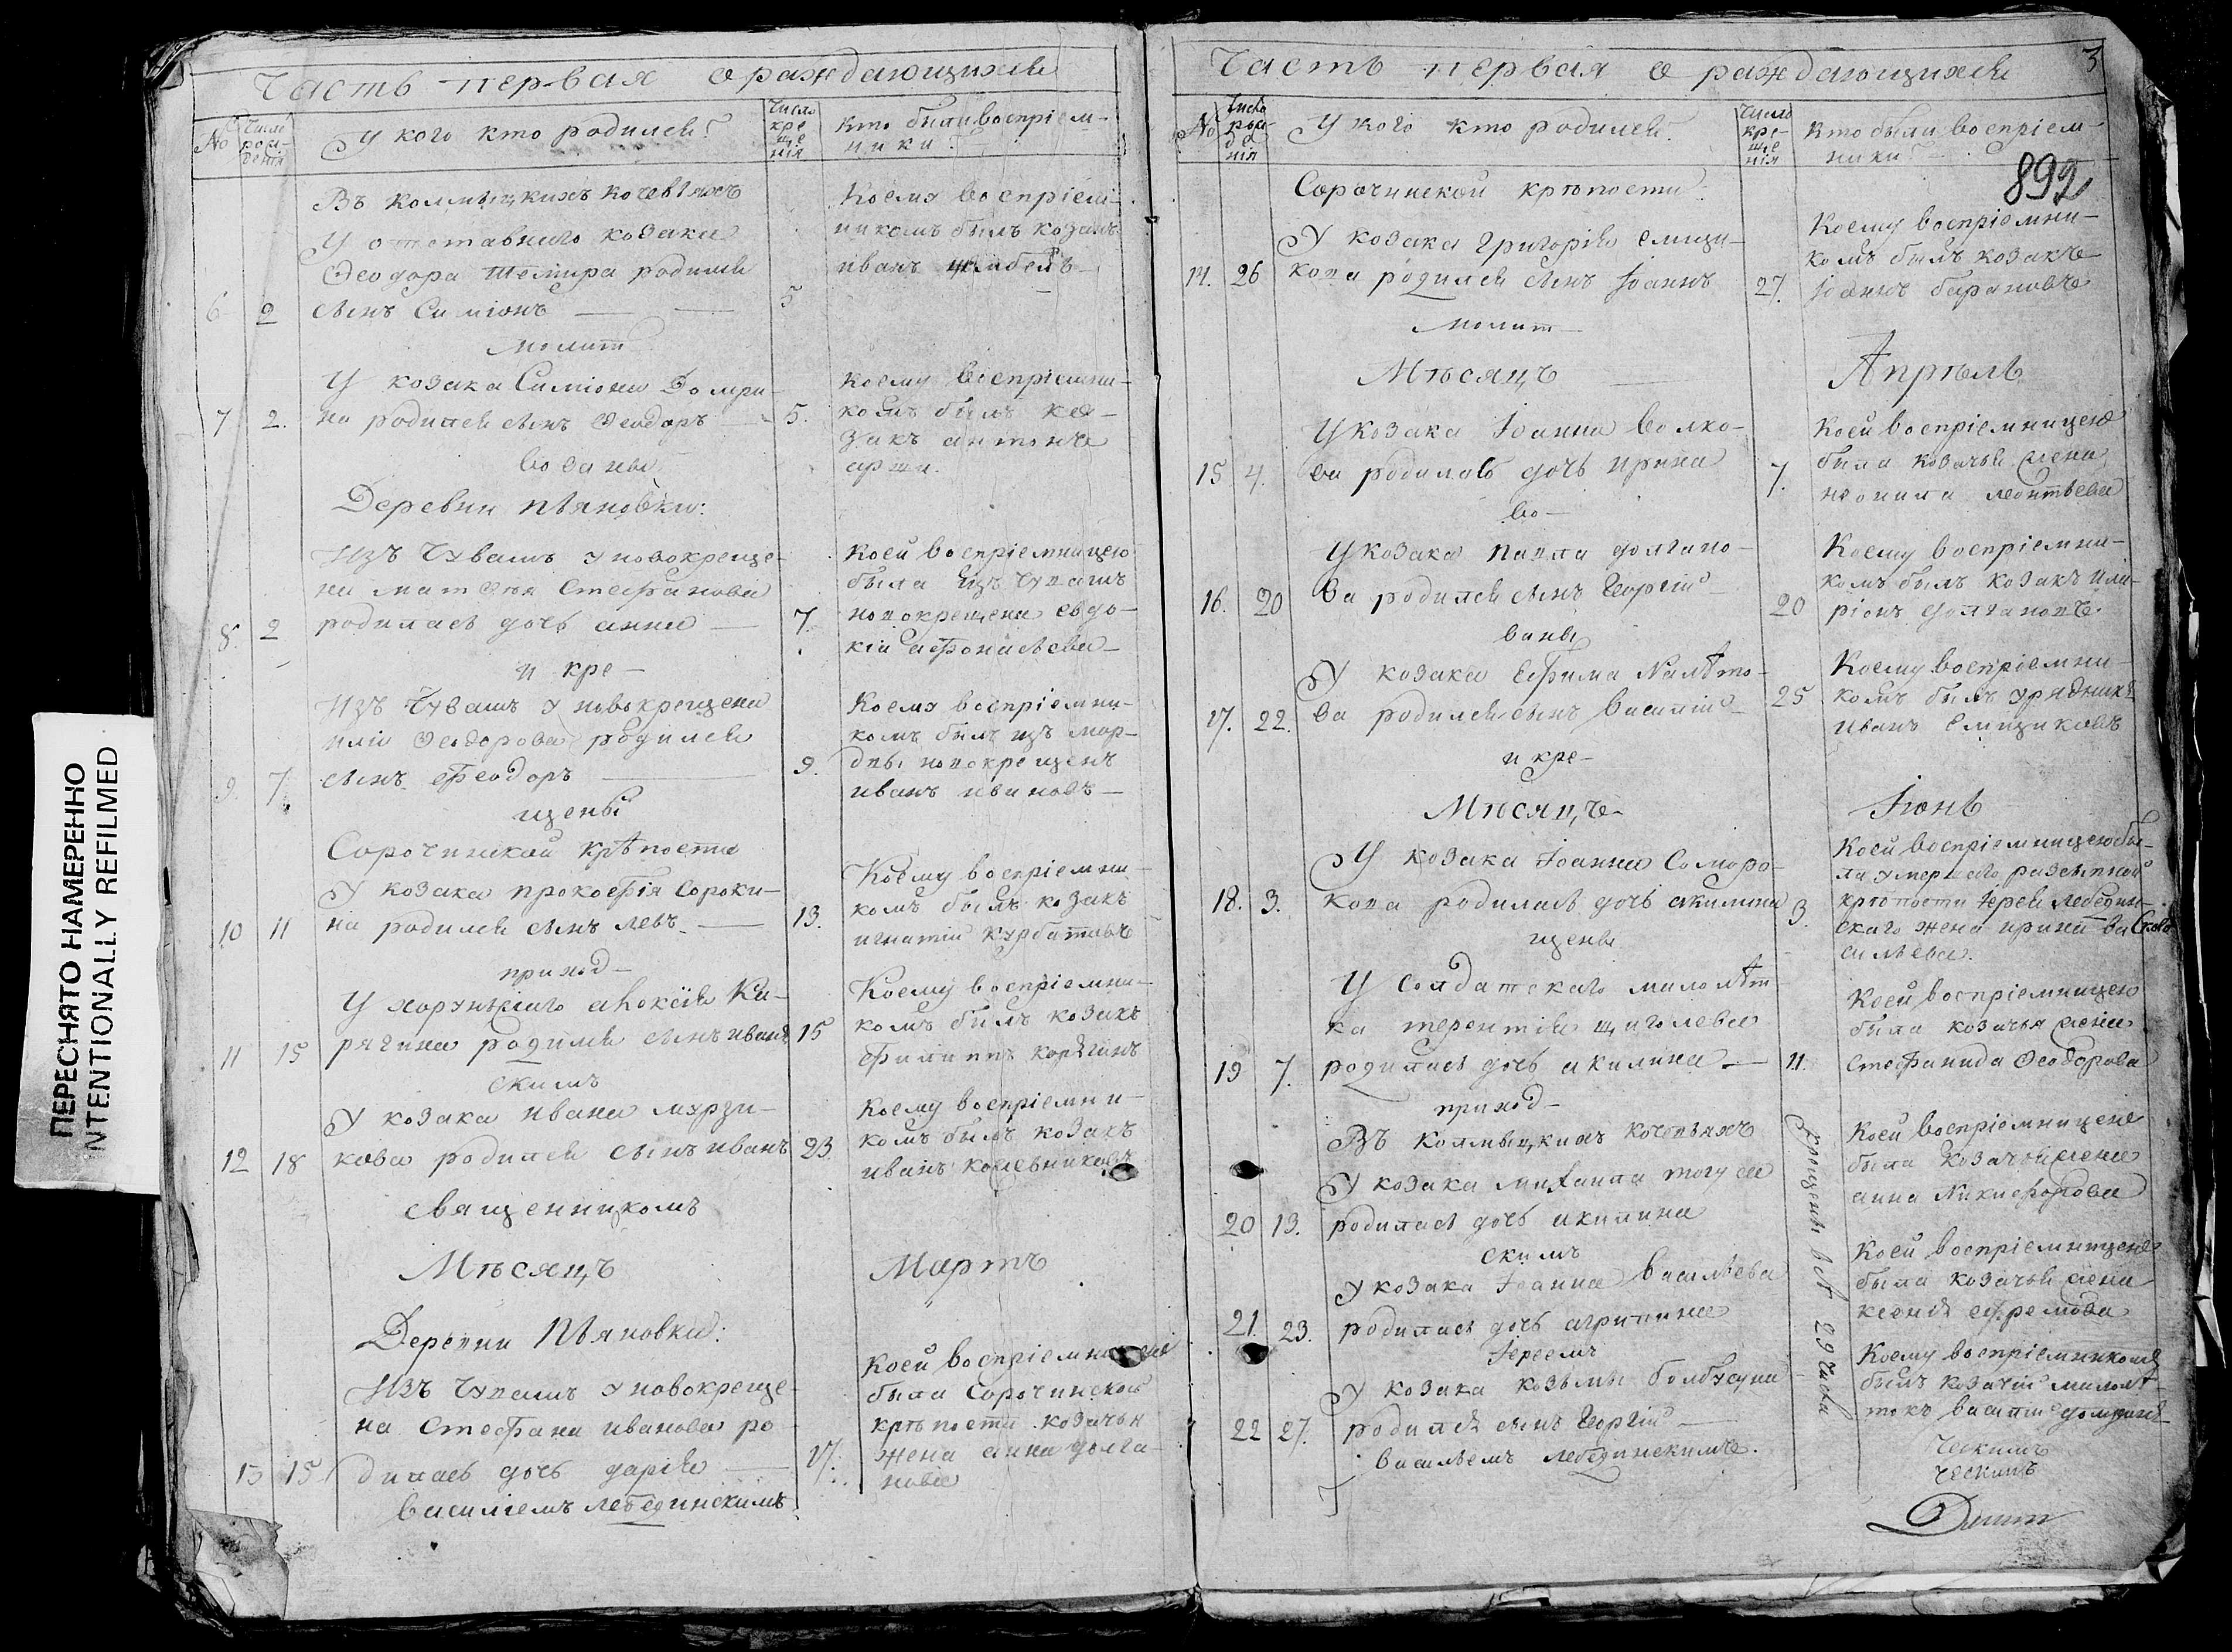 ПЕРЕСНЯТО НАМЕРЕННО
INTENTIONALLY REFILMED
Часть первая о раждающихся
№
Число рождения
У кого кто родился?
Число крещения
Кто были воспріемники?
Въ колмыцкихъ кочевіяхъ
У отставнаго козака
Ѳеодора родился
6 2 сынъ Симіонъ 5
Коему воспріем-
никомъ былъ козакъ
иванъ
молит
У козака Симіона Домри-
7 2. на родился сынъ Ѳеодоръ 5.
Коему воспріемни-
комъ былъ ко-
закъ антонъ
вованы
Деревни пьяновки:
Изъ Чувашъ у новокреще-
на матѳея Стефанова
8. 2 родилась дочь анна 7.
Коей воспріемницею
была изъ Чувашъ
новокрещена евдо-
кіа афонасьева
и кре-
Изъ Чувашъ у новокрещена
иліи Ѳеодорова родился
9. 7. сынъ Феодоръ 9.
Коему воспріемни-
комъ былъ изъ мор-
двы новокрещенъ
иванъ ивановъ
щены
Сорочинской крѣпости
У козака прокофія Сороки-
10 11 на родился сынъ левъ 13.
Коему воспріемни-
комъ былъ козакъ
игнатій курбатовъ
приход-
У хорунжаго алексія Ка-
11 15 рягина родился сынъ иванъ 15
Коему воспріемни-
комъ былъ козакъ
филиппъ корягинъ
скимъ
У козака ивана мурзи-
12 18 кова родился сынъ иванъ 23.
Коему воспріемни-
комъ былъ козакъ
иванъ кожевниковъ
священникомъ
Мѣсяцъ Мартъ
Деревни Пьяновки:
Изъ Чувашъ у новокреще-
на Стефана иванова ро-
13 15 дилась дочь дарія 17.
Коей воспріемницею
была Сорочинской
крѣпости козачья
жена анна долга-
нова
василіемъ лебединскимъ
Часть первая о раждающихся
3
892
№
Число рождения
У кого кто родился.
Число крещения
Кто были воспріемники?
Сорочинской крѣпости:
У козака григорія емщи-
14. 26 кова родился сынъ Іоаннъ 27.
Коему воспріемни-
комъ былъ козакъ
Іоаннъ барановъ
молит
Мѣсяцъ Апрѣль
У козака Іоанна волко-
15 4. ва родилась дочь ирина 7.
Коей воспріемницею
была козачья жена
неонила леонтьева
во-
У козака павла долгано-
16. 20 ва родился сынъ Георгій 20
Коему воспріемни-
комъ былъ козакъ ила-
ріонъ долгановъ
ваны
У козака Ефима
17. 22. ва родился сынъ василій 25
Коему воспріемни-
комъ былъ урядникъ
иванъ Емщиковъ
и кре-
Мѣсяцъ Іюнь
У козака Іоанна Соморо-
18. 3. кова родилась дочь акилина 3.
Коей воспріемницею бы-
ла умершаго разсыпной
крѣпости Іерея лебедин-
скаго жена ирина ва-
сильева.
щены
У Солдатскаго малолѣт-
ка терентія щиголева
19 7. родилась дочь акилина 11.
Коей воспріемницею
была козачья жена
Стефанида Ѳеодорова
приход-
Въ колмыцкихъ кочевьяхъ
У козака михаила
20 13. родилась дочь акилина
Коей воспріемницею
была козачья жена
анна Никифорова
скимъ
У козака Іоанна васильева
21. 23. родилась дочь агрипина
Коей воспріемницею
была козачья жена
ксенія ефремова
Іереемъ
У козака козьмы
22 27. родился сынъ Георгій
Коему воспріемникомъ
былъ козачій малолѣ-
токъ василій
васильемъ лебединскимъ.
крещены 29 числа